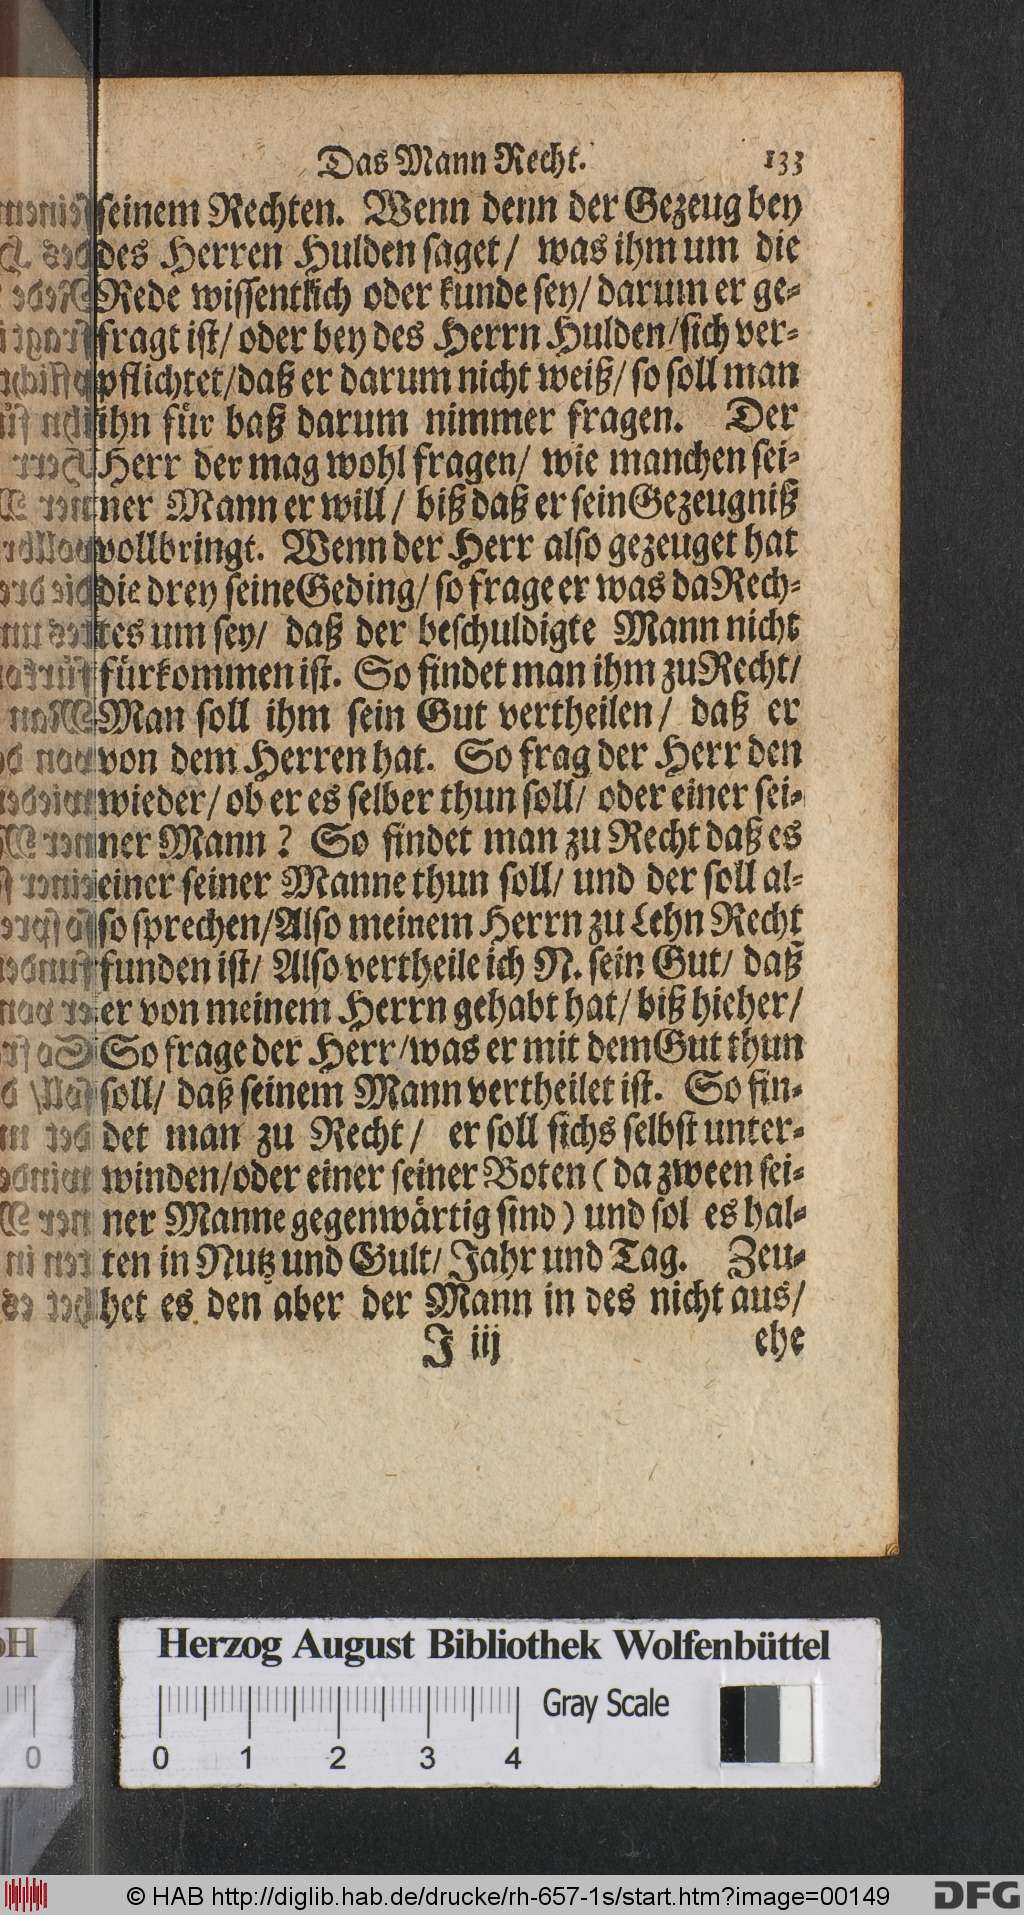 Das Mann Recht. 133
seinem Rechten. Wenn denn der Gezeug bey
des Herren Hulden saget / was ihm um die
Rede wissentlich oder kunde sey / darum er ge-
fragt ist / oder bey des Herrn Hulden / sich ver-
pflichtet / daß er darum nicht weiß / so soll man
ihn für baß darum nimmer fragen. Der
Herr der mag wohl fragen / wie manchen sei-
ner Mann er will / biß daß er sein Gezeugniß
vollbringt. Wenn der Herr also gezeuget hat
die drey seine Geding / so frage er was da Rech-
tes um sey / daß der beschuldigte Mann nicht
fürkommen ist. So findet man ihm zu Recht /
Man soll ihm sein Gut vertheilen / daß er
von dem Herren hat. So frag der Herr den
wieder / ob er es selber thun soll / oder einer sei-
ner Mann ? So findet man zu Recht daß es
einer seiner Manne thun soll / und der soll al-
so sprechen / Also meinem Herrn zu Lehn Recht
funden ist / Also vertheile ich N. sein Gut / daß
er von meinem Herrn gehabt hat / biß hieher /
So frage der Herr / was er mit dem Gut thun
soll / daß seinem Mann vertheilet ist. So fin-
det man zu Recht / er soll sichs selbst unter-
winden / oder einer seiner Boten ( da zween sei-
ner Manne gegenwärtig sind ) und sol es hal-
ten in Nutz und Gult / Jahr und Tag. Zeu-
het es den aber der Mann in des nicht aus /
J iij ehe
Herzog August Bibliothek Wolfenbüttel
Gray Scale
0 1 2 3 4
0
© HAB http://diglib.hab.de/drucke/rh-657-1s/start.htm?image=00149 DFG